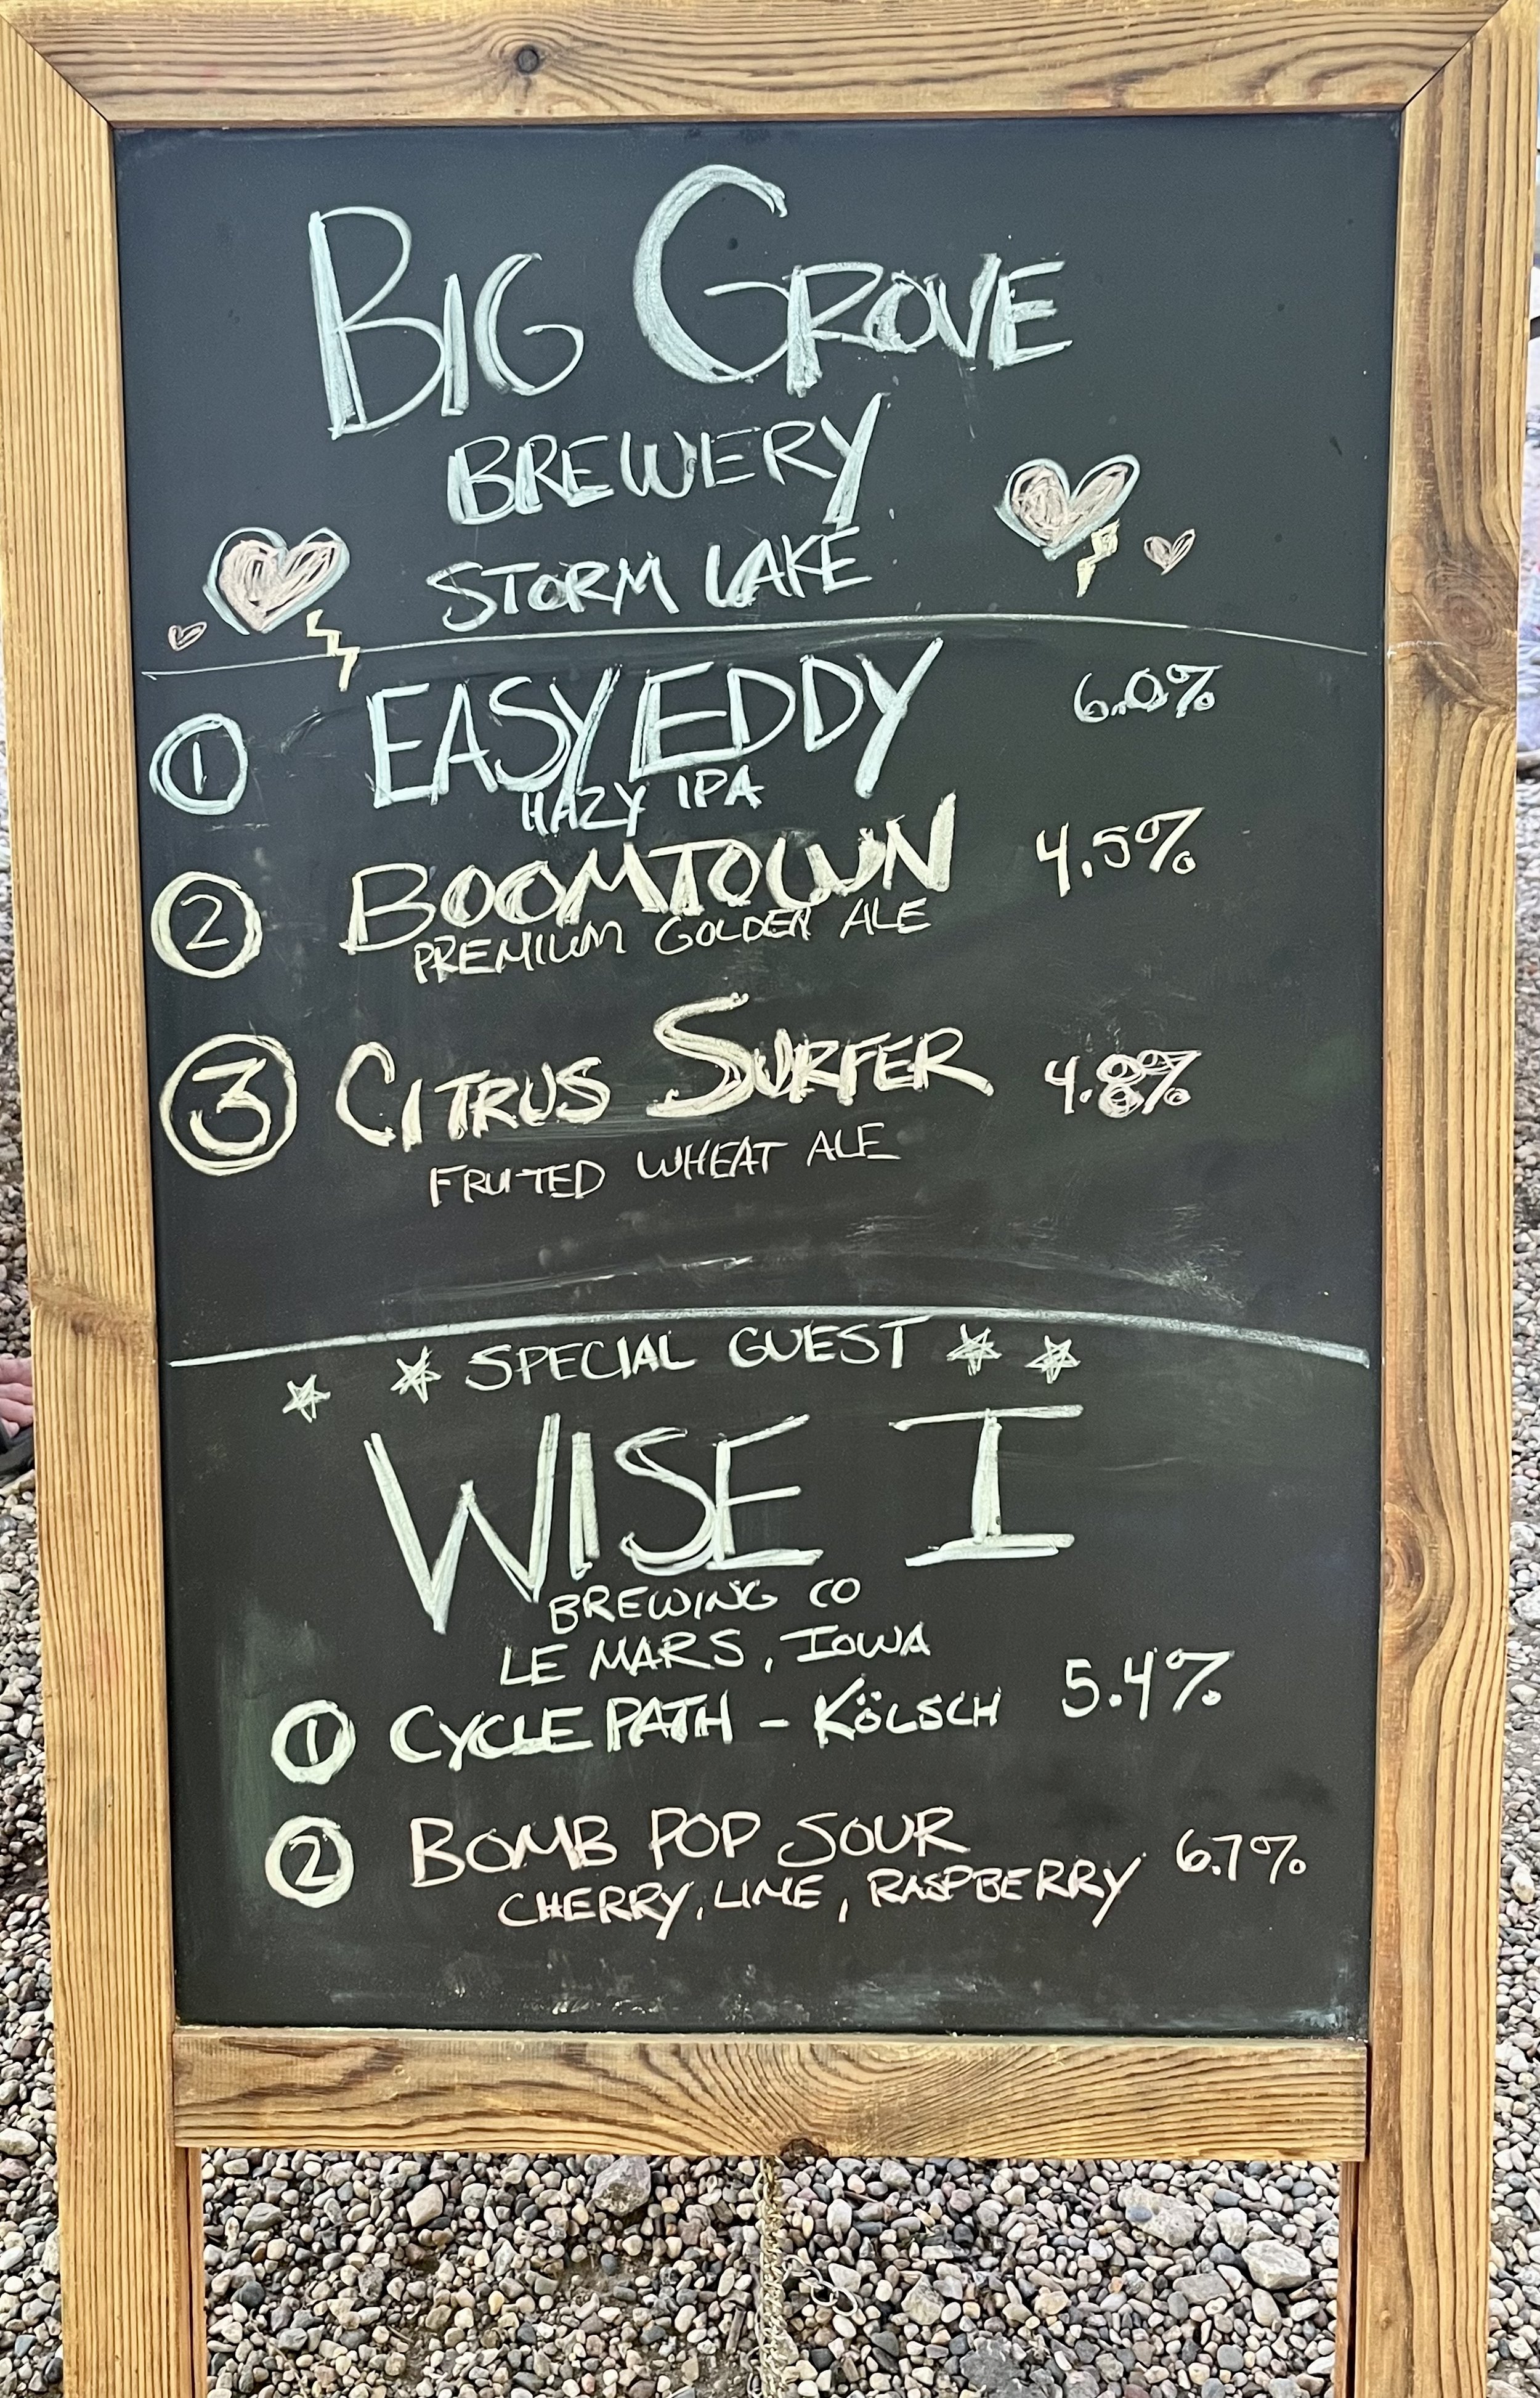 BIG GROVE
BREWERY
STORM LAKE
1 EASY EDDY 6.0%
HAZY IPA
2 BOOMTOWN 4.5%
PREMIUM GOLDEN ALE
3 CITRUS SURFER 4.8%
FRUITED WHEAT ALE
SPECIAL GUEST
WISE I
BREWING CO
LE MARS, IOWA
1 CYCLE PATH - KÖLSCH 5.4%
2 BOMB POP SOUR 6.7%
CHERRY, LIME, RASPBERRY